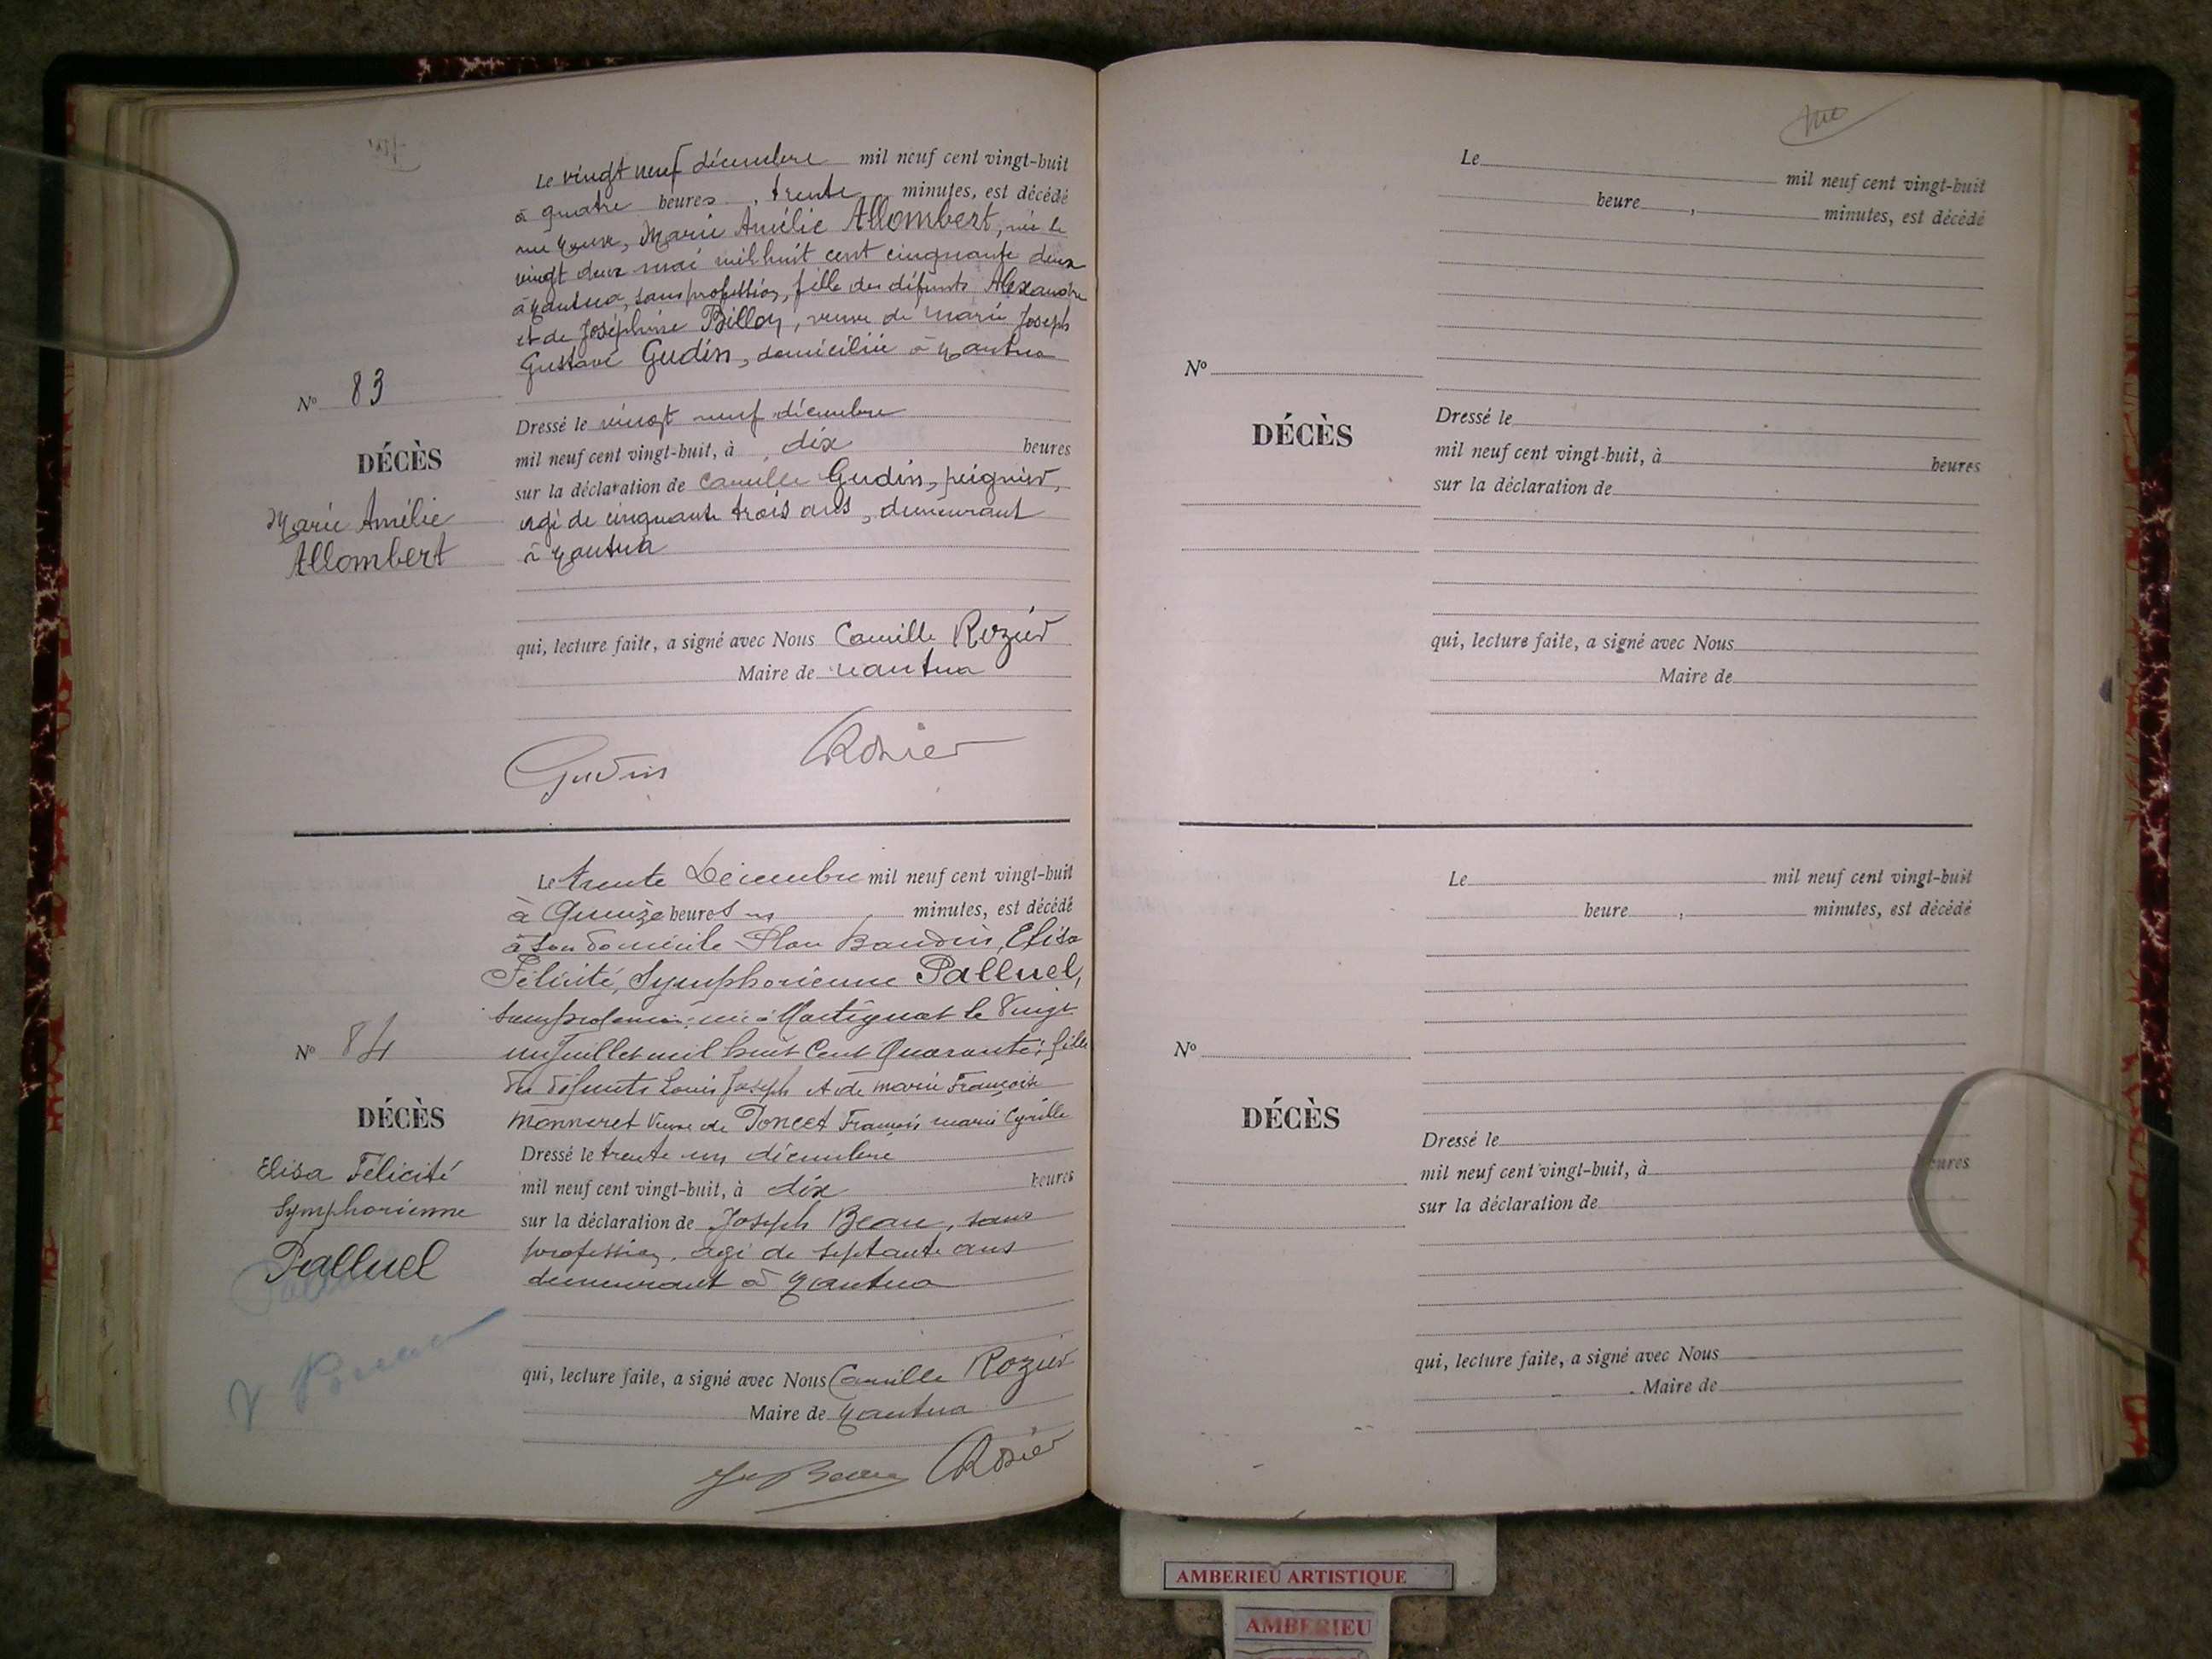 Le vingt neuf décembre mil neuf cent vingt-huit
à quatre heures, trente minutes, est décédé
rue Neuve, Marie Amélie Allombert, née le
vingt deux mai mil huit cent cinquante deux
à Nantua, sans profession, fille des défunts Alexandre
et de Joséphine Billon, veuve de Marie Joseph
Gustave Gudin, domiciliée à Nantua
Nº 83
DÉCÈS
Marie Amélie
Allombert
Dressé le vingt neuf décembre
mil neuf cent vingt-huit, à dix heures
sur la déclaration de Camille Gudin, peignier,
agé de cinquante trois ans, demeurant
à Nantua
qui, lecture faite, a signé avec Nous Camille Rozier
Maire de Nantua
Gudin CRozier
Le trente Décembre mil neuf cent vingt-huit
à Quinze heures minutes, est décédé
à son domicile Baudin, Elisa
Félicité, Symphorienne Palluel,
sans profession, née à Martignat le Vingt
un Juillet mil huit Cent Quarante, fille
des défunts Louis Joseph et de Marie Françoise
Monneret Veuve de Poncet François marie Cyrille
Nº 84
DÉCÈS
Elisa Félicité
Symphorienne
Palluel
Dressé le trente un décembre
mil neuf cent vingt-huit, à dix heures
sur la déclaration de Joseph Beau, sans
profession, agé de septante ans
demeurant à Nantua
qui, lecture faite, a signé avec Nous Camille Rozier
Maire de Nantua
Beau CRozier
Le mil neuf cent vingt-huit
heure , minutes, est décédé
Nº
DÉCÈS
Dressé le
mil neuf cent vingt-huit, à heures
sur la déclaration de
qui, lecture faite, a signé avec Nous
Maire de
Le mil neuf cent vingt-huit
heure , minutes, est décédé
Nº
DÉCÈS
Dressé le
mil neuf cent vingt-huit, à heures
sur la déclaration de
qui, lecture faite, a signé avec Nous
Maire de
AMBERIEU ARTISTIQUE
AMBERIEU